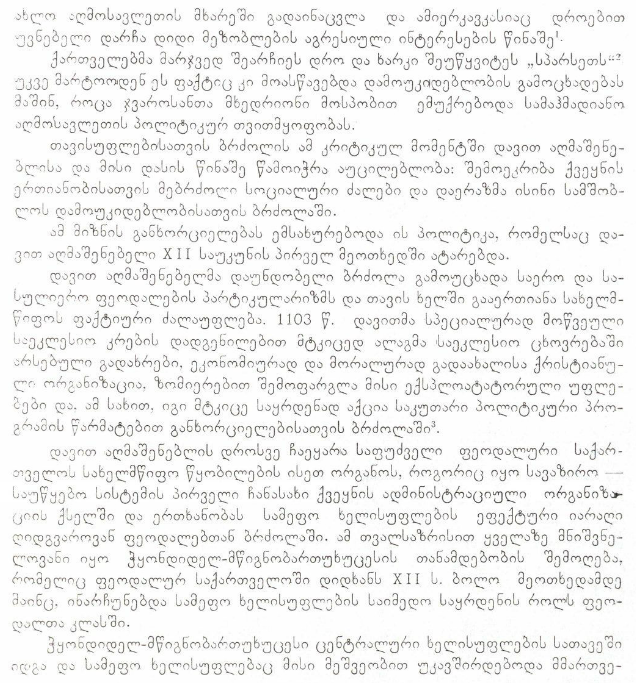 ახლო აღმოსავლეთის მხარეში გადაინაცვლა და ამიერკავკასიაც დროებით
უვნებელი დარჩა დიდი მეზობლების აგრესიული ინტერესების წინაშე¹.
ქართველებმა მარჯვედ შეარჩიეს დრო და ხარკი შეუწყვიტეს „სპარსეთს“²
უკვე მარტოოდენ ეს ფაქტიც კი მოასწავებდა დამოუკიდებლობის გამოცხადებას
მაშინ, როცა ჯვაროსანთა მხედრიონი მოსპობით ემუქრებოდა სამაჰმადიანო
აღმოსავლეთის პოლიტიკურ თვითმყოფობას.
თავისუფლებისათვის ბრძოლის ამ კრიტიკულ მომენტში დავით აღმაშენე-
ბლისა და მისი დასის წინაშე წამოიჭრა აუცილებლობა: შემოეკრიბა ქვეყნის
ერთიანობისათვის მებრძოლი სოციალური ძალები და დაერაზმა ისინი სამშობ-
ლოს დამოუკიდებლობისათვის ბრძოლაში.
ამ მიზნის განხორციელებას ემსახურებოდა ის პოლიტიკა, რომელსაც და-
ვით აღმაშენებელი XII საუკუნის პირველ მეოთხედში ატარებდა.
დავით აღმაშენებელმა დაუნდობელი ბრძოლა გამოუცხადა საერო და სა-
სულიერო ფეოდალების პარტიკულარიზმს და თავის ხელში გააერთიანა სახელმ-
წიფოს ფაქტიური ძალაუფლება. 1103 წ. დავითმა სპეციალურად მოწვეული
საეკლესიო კრების დადგენილებით მტკიცედ ალაგმა საეკლესიო ცხოვრებაში
არსებული გადახრები, ეკონომიურად და მორალურად გადაახალისა ქრისტიანუ-
ლი ორგანიზაცია, ზომიერებით შემოფარგლა მისი ექსპლოატატორული უფლე-
ბები და, ამ სახით, იგი მტკიცე საყრდენად აქცია საკუთარი პოლიტიკური პრო-
გრამის წარმატებით განხორციელებისათვის ბრძოლაში³.
დავით აღმაშენებლის დროსვე ჩაეყარა საფუძველი ფეოდალური საქარ-
თველოს სახელმწიფო წყობილების ისეთ ორგანოს, როგორიც იყო სავაზირო —
საუწყებო სისტემის პირველი ჩანასახი ქვეყნის ადმინისტრაციული ორგანიზა-
ციის ქსელში და ერთხანობას სამეფო ხელისუფლების ეფექტური იარაღი
დიდგვაროვან ფეოდალებთან ბრძოლაში. ამ თვალსაზრისით ყველაზე მნიშვნე-
ლოვანი იყო ჭყონდიდელ-მწიგნობართუხუცესის თანამდებობის შემოღება,
რომელიც ფეოდალურ საქართველოში დიდხანს XII ს. ბოლო მეოთხედამდე
მაინც, ინარჩუნებდა სამეფო ხელისუფლების საიმედო საყრდენის როლს ფეო-
დალთა კლასში.
ჭყონდიდელ-მწიგნობართუხუცესი ცენტრალური ხელისუფლების სათავეში
იდგა და სამეფო ხელისუფლებაც მისი მეშვეობით უკავშირდებოდა მმართვე-